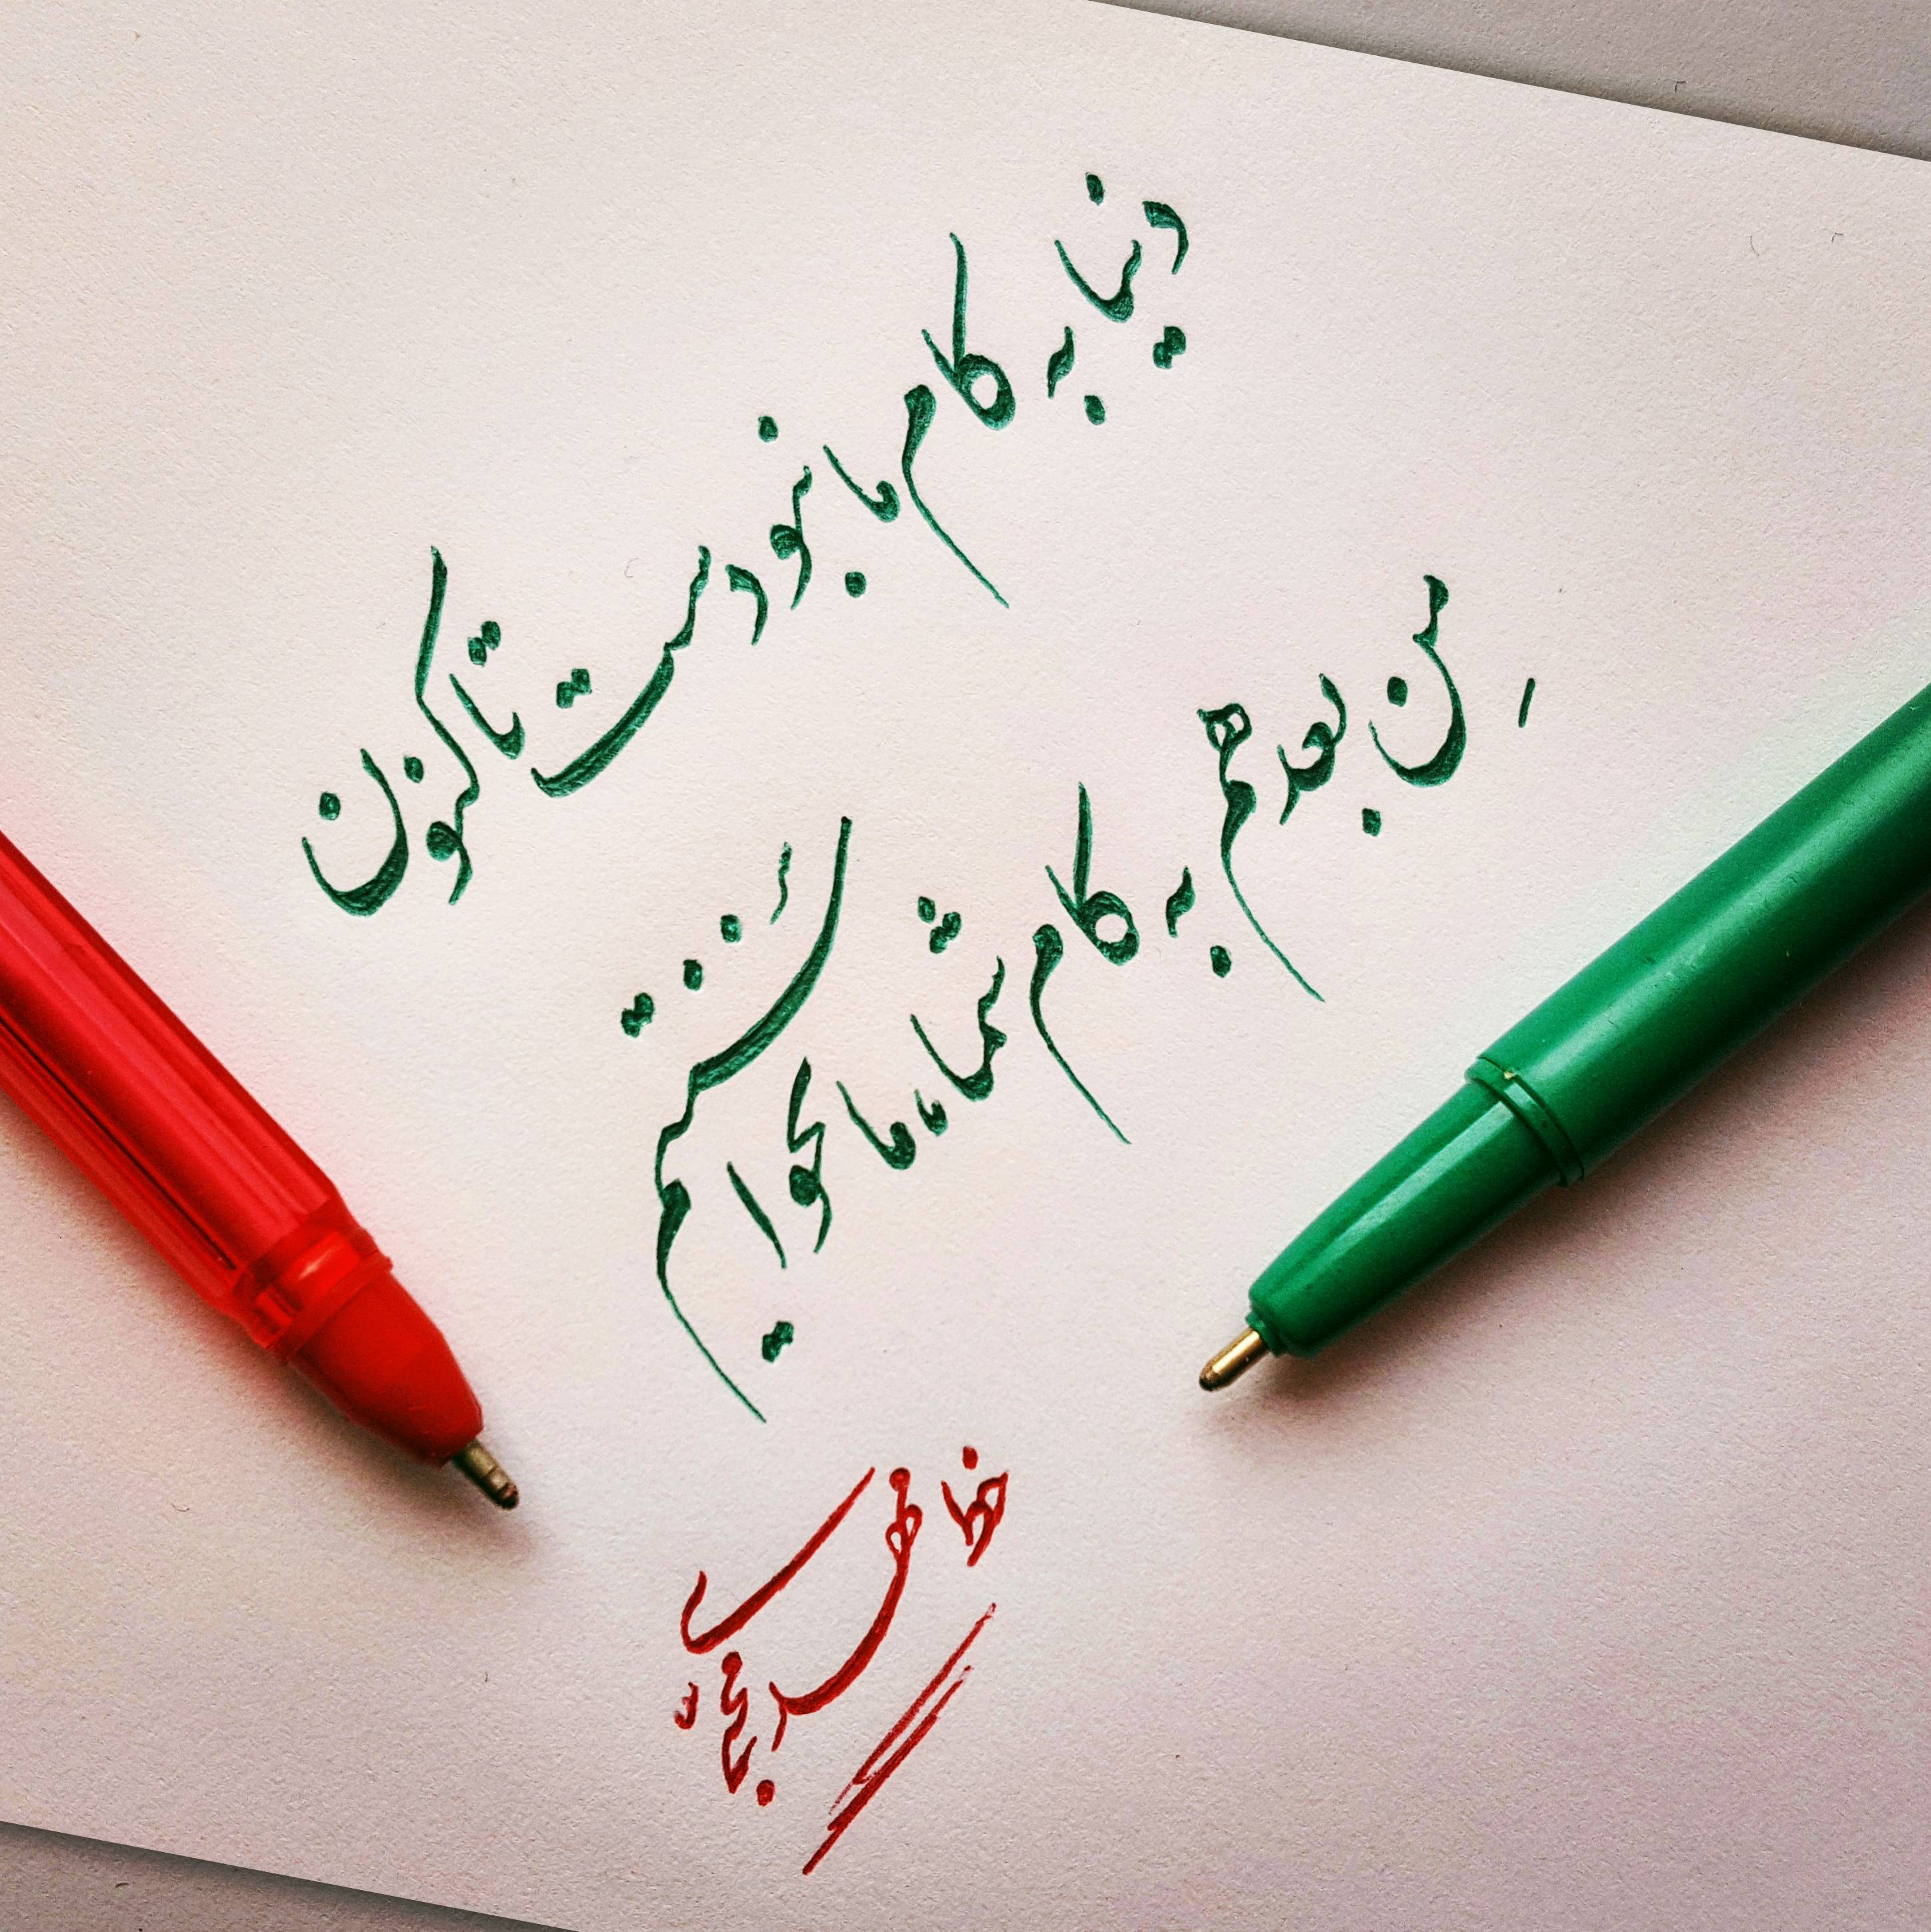 دنیا به کام ما نبودست تا کنون
مِن بعد هم به کام شما، ما نخواستیم